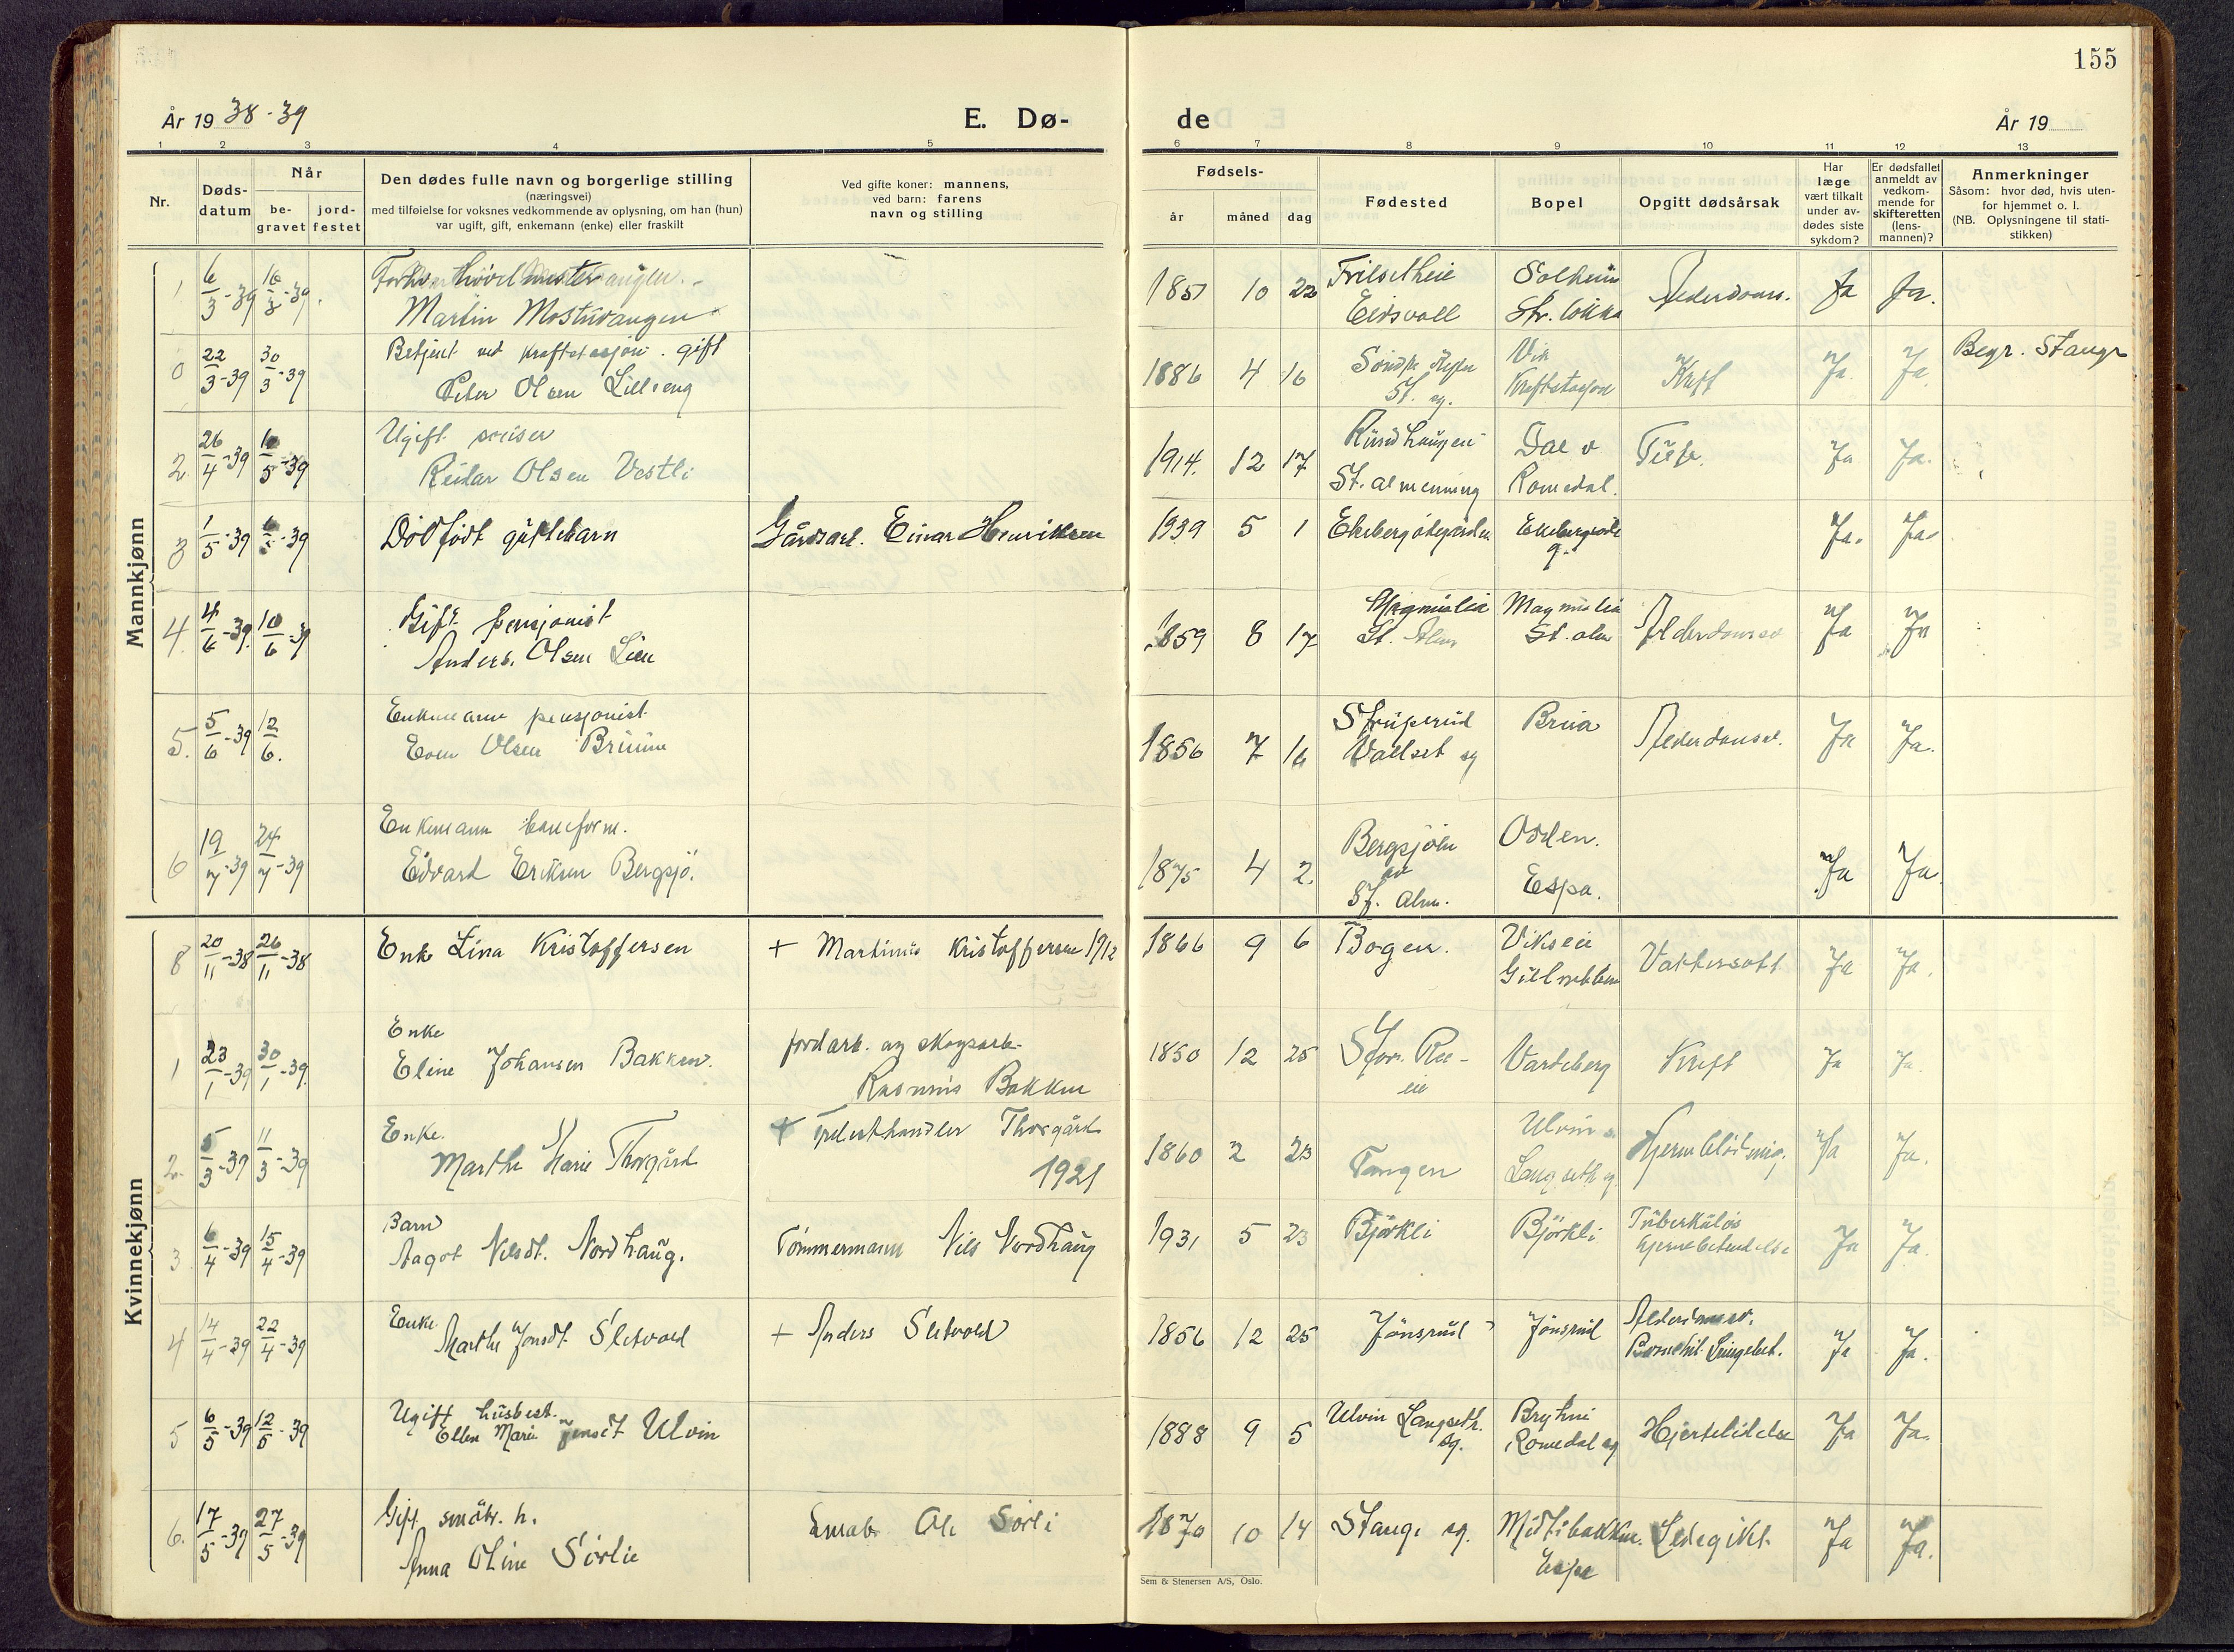 155
År 19 38-39
E. Dø-
de
År 19
1 2 3 4 5 6 7 8 9 10 11 12 13
Nr.
Døds-
datum
Når
be-
gravet
jord-
festet
Den dødes fulle navn og borgerlige stilling
(næringsvei)
med tilføielse for voksnes vedkommende av oplysning, om han (hun)
var ugift, gift, enkemann (enke) eller fraskilt
Ved gifte koner: mannens,
ved barn: farens
navn og stilling
Fødsels-
år måned dag
Fødested
Bopel
Opgitt dødsårsak
Har
læge
vært tilkalt
under av-
dødes siste
sykdom?
Er dødsfallet
anmeldt av
vedkom-
mende for
skifteretten
(lens-
mannen)?
Anmerkninger
Såsom: hvor død, hvis uten-
for hjemmet o. l.
(NB. Oplysningene til stati-
stikken)
Mannkjønn
1 6/3-39 16/3-39
Martin Mostuvangen
1857 10 22 Eidsvoll Solheim Ja Ja.
0 22/3-39 30/3-39 Betjent ved kraftstasjon. gift
Peter Olsen Lilleeng
1886 4 16 St. sg. Vik
Kraftstasjon Kreft Ja. Ja. Begr. Stange
2 26/4-39 5-39 Ugift
Reidar Olsen Vestli
1914. 12 17 Rundhaugen
St. almenning Dal v
Romedal. Ja Ja.
3 1/5-39 6/5-39 Dødfødt guttebarn Gårdsarb. Einar Henriksen
1939 5 1 Ekebergødegården Ja. Ja
4. 4/6-39. 10/6-39 Gift pensjonist
Anders. Olsen Lien
1859 8 17 Magnuslia
St. Alm. Magnuslia
St. alm Alderdomssv Ja Ja
5. 5/6-39 12/6. Enkemann pensjonist
Even Olsen Bruun
1856 7 16 Struperud
Vallset sg Brua Alderdomsv. Ja Ja.
6 19/7-39 24/7-39 Enkemann baneform.
Edvard Eriksen Bergsjø.
1875 4 2. Bergsjøen
av
St. Alm. Odden.
Espa. Ja Ja.
Kvinnekjønn
8 20/11-38 26/11-38 Enke Lina Kristoffersen + Martinius Kristoffersen 1912
1866 9 6 Bogen. Vikseie
Ja Ja.
1 23/1-39 30/1-39. Enke
Eline Johansen Bakken. jordarb. og skogsarb.
Rasmus Bakken
1850 12 25 eie Vardeberg Kreft Ja Ja.
2. 5/3-39 11/3-39 Enke.
Marthe Marie Thorgård + Thorgård
1921
1860 2 23 Tangen Ulvin
Langseth sg. Hjerneblødning. Ja Ja.
3 6/4-39 15/4-39 Barn
Aagot Nilsdt. Nordhaug. Tømmermann Nils Nordhaug
1931 5 23 Bjørkli Bjørkli Tuberkuløs
hjernebetendelse Ja Ja.
4 14/4-39 22/4-39 Enke
Marthe Jonsdt. Sletvold + Anders Sletvold
1856 12 25 Jønsrud Jønsrud Alderdomssv.
Ja Ja.
5 6/5-39 12/5-39 Ugift husbest.
Ellen Marie Jensdt Ulvin
1888 9 5 Ulvin Langseth.
sg. Bryhni
Romedal sg Hjertelidelse Ja Ja.
6. 17/5-39 27/5-39 Gift småbr. h.
Anna Oline Sørlie Småb. Ole Sørli
1870 10 14 Stange sg. Midtibakken.
Espa Ledegikt. Ja Ja.
Sem & Stenersen A/S, Oslo.